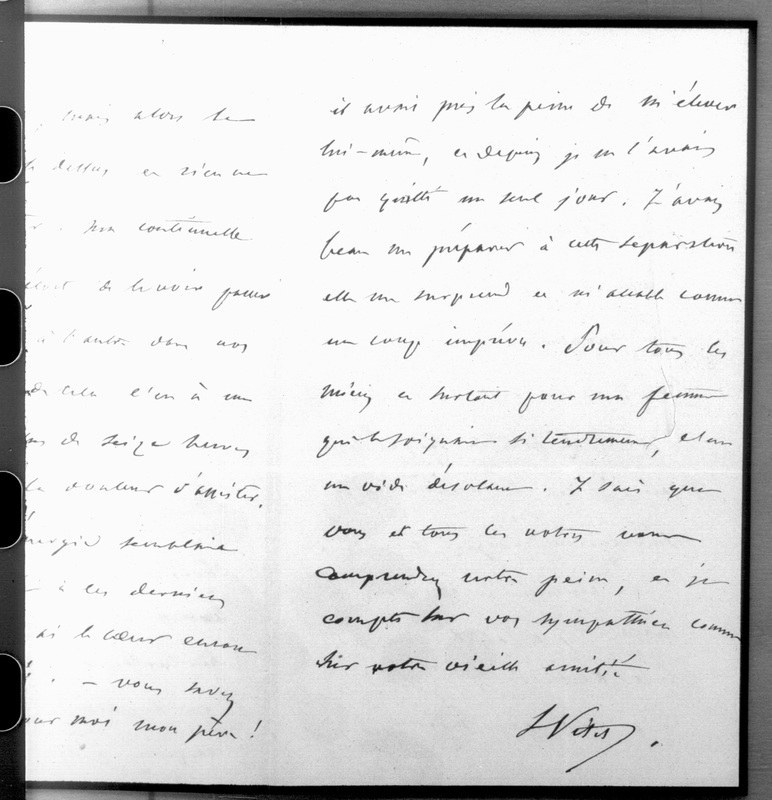 mais alors la
dessus en rien ne
ma continuelle
de le voir passer
à l'autre dans nos
de cela c'en à un
de seize heures
la douleur d'assister,
énergie semblait
à ces derniers
ai le cœur encore
– vous savez
pour moi mon père !
il avait pris la peine de m'élever
lui-même, et depuis je ne l'avais
pas quitté un seul jour. J'avais
beau me préparer à cette séparation
elle me surprend et m'accable comme
un coup imprévu. Pour tous les
miens et surtout pour ma femme
qui le soignait si tendrement, c'est
un vide désolant. Je sais que
vous et tous les vôtres vous
comprendrez notre peine, et je
compte sur vos sympathies comme
sur votre vieille amitié
L Vitet.